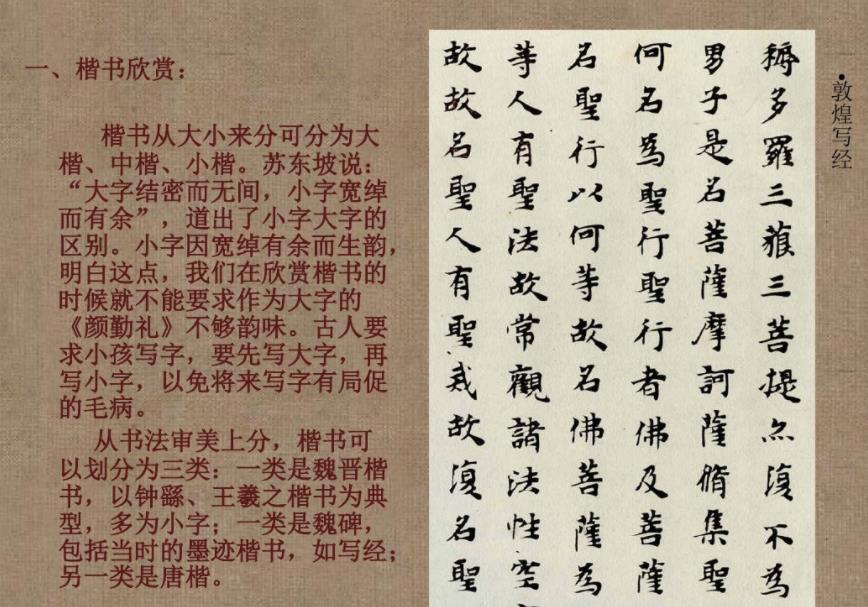 一、楷书欣赏：
楷书从大小来分可分为大
楷、中楷、小楷。苏东坡说：
“大字结密而无间，小字宽绰
而有余”，道出了小字大字的
区别。小字因宽绰有余而生韵，
明白这点，我们在欣赏楷书的
时候就不能要求作为大字的
《颜勤礼》不够韵味。古人要
求小孩写字，要先写大字，再
写小字，以免将来写字有局促
的毛病。
从书法审美上分，楷书可
以划分为三类：一类是魏晋楷
书，以钟繇、王羲之楷书为典
型，多为小字；一类是魏碑，
包括当时的墨迹楷书，如写经；
另一类是唐楷。
•敦煌写经
耨多羅三藐三菩提亦復不為
男子是名菩薩摩訶薩脩集聖
何名為聖行聖行者佛及菩薩
名聖行以何等故名佛菩薩為
等人有聖法故常觀諸法性空
故故名聖人有聖戒故復名聖